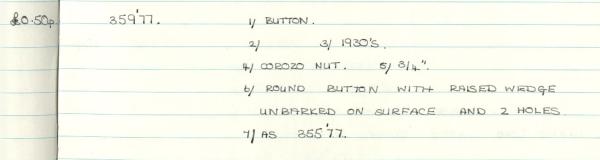 £0.50p. 359'77. 1/ BUTTON.
2/ 3/ 1930'S.
4/ COROZO NUT. 5/ 3/4".
6/ ROUND BUTTON WITH RAISED WEDGE
UNBARKED ON SURFACE AND 2 HOLES.
7/ AS 355'77.